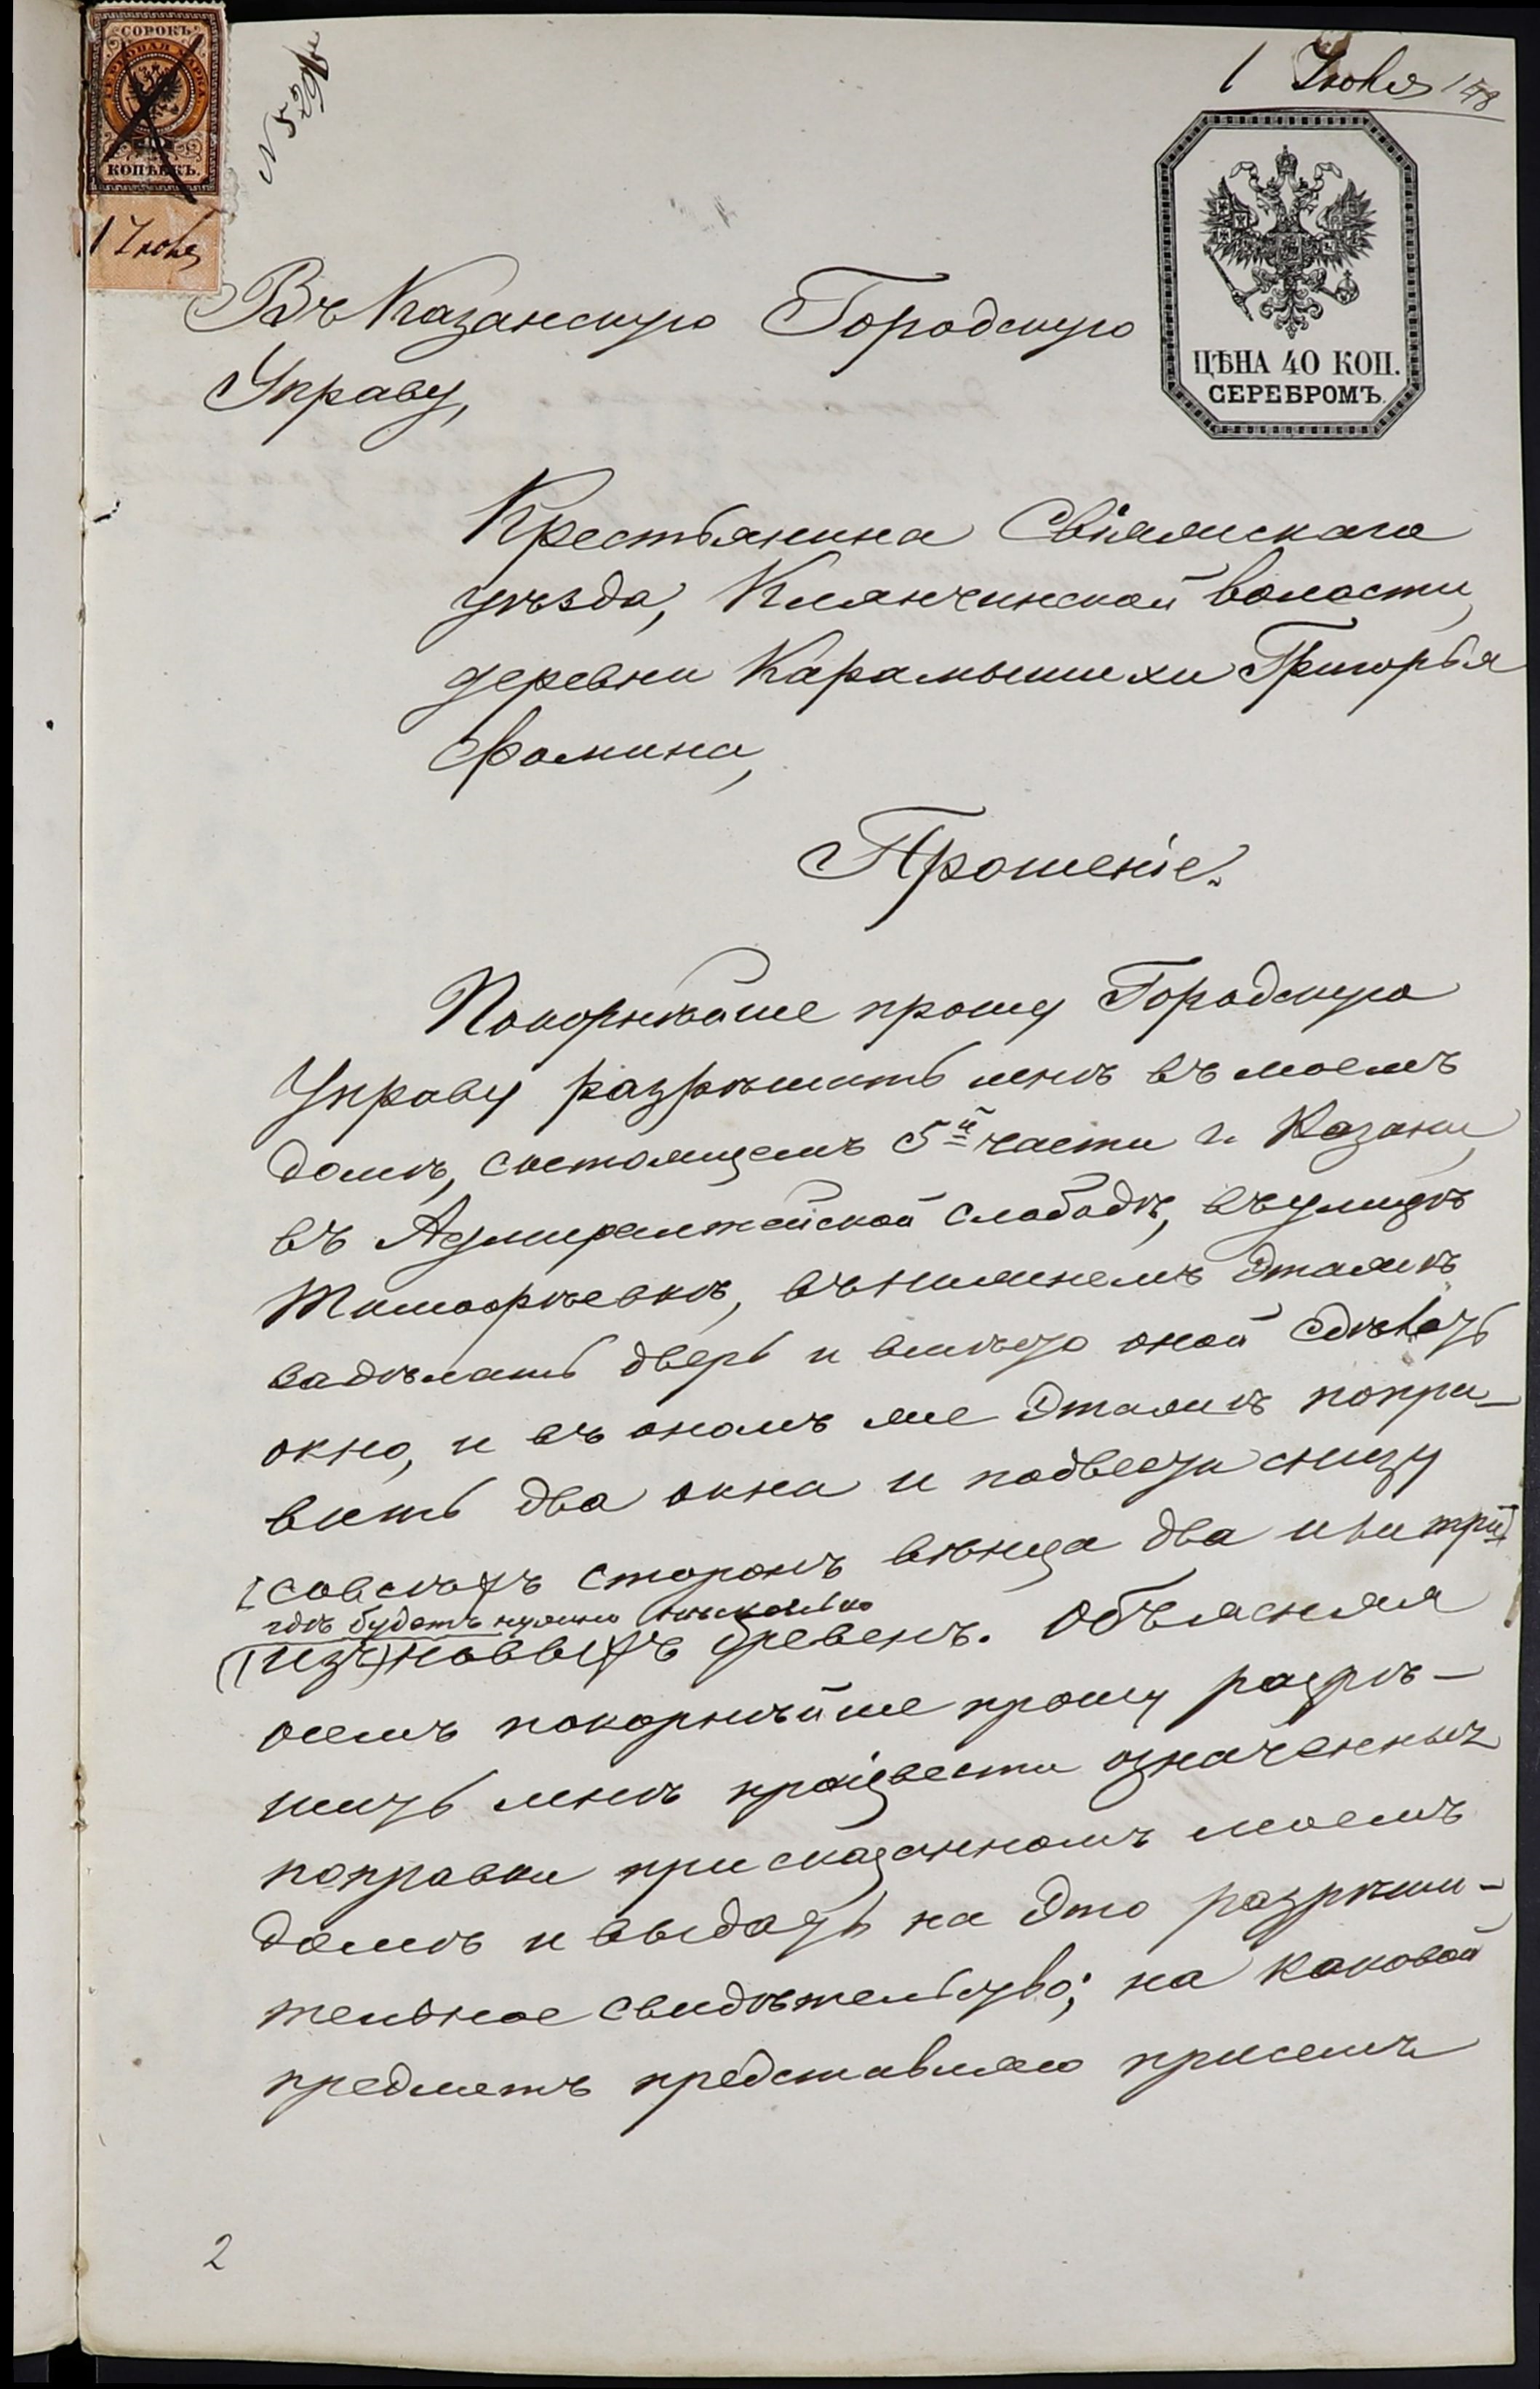 СОРОКЪ
ГЕРБОВАЯ МАРКА
40
КОПѢЕКЪ.
1 Июня
1 Июня 1878
ЦѢНА 40 КОП.
СЕРЕБРОМЪ.
Въ Казанскую Городскую
Управу,
Крестьянина Свіяжскаго
уѣзда, Клянчинской волости,
деревни Карамышихи Григорья
Фомина,
Прошеніе.
Покорнѣйше прошу Городскую
Управу разрѣшить мнѣ въ моемъ
домѣ, состоящемъ 5й части г. Казани,
въ Адмиралтейской слободѣ, въ улицѣ
Тимофѣевкѣ, въ нижнемъ этажѣ
задѣлать дверь и вмѣсто оной сдѣлать
окно, и въ ономъ же этажѣ попра-
вить два окна и подвести снизу
со всѣхъ сторонъ вѣнца два или три
гдѣ будетъ нужно нѣсколько
(изъ) новыхъ бревенъ. Объясняя
о семъ покорнѣйше прошу разрѣ-
шить мнѣ произвести означенныя
поправки при сказанномъ моемъ
домѣ и выдать на это разрѣши-
тельное свидѣтельство; на каковой
предметъ представляю присемъ
2